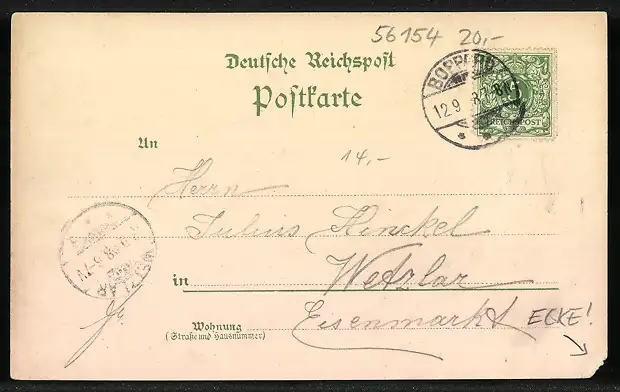 56154 20,-
Deutsche Reichspost
Postkarte
BOPPARD
12 9
REICHSPOST
An
14,-
Herrn
Julius Hinckel
WETZLAR
in Wetzlar
Wohnung
(Straße und Hausnummer)
Eisenmarkt
ECKE!